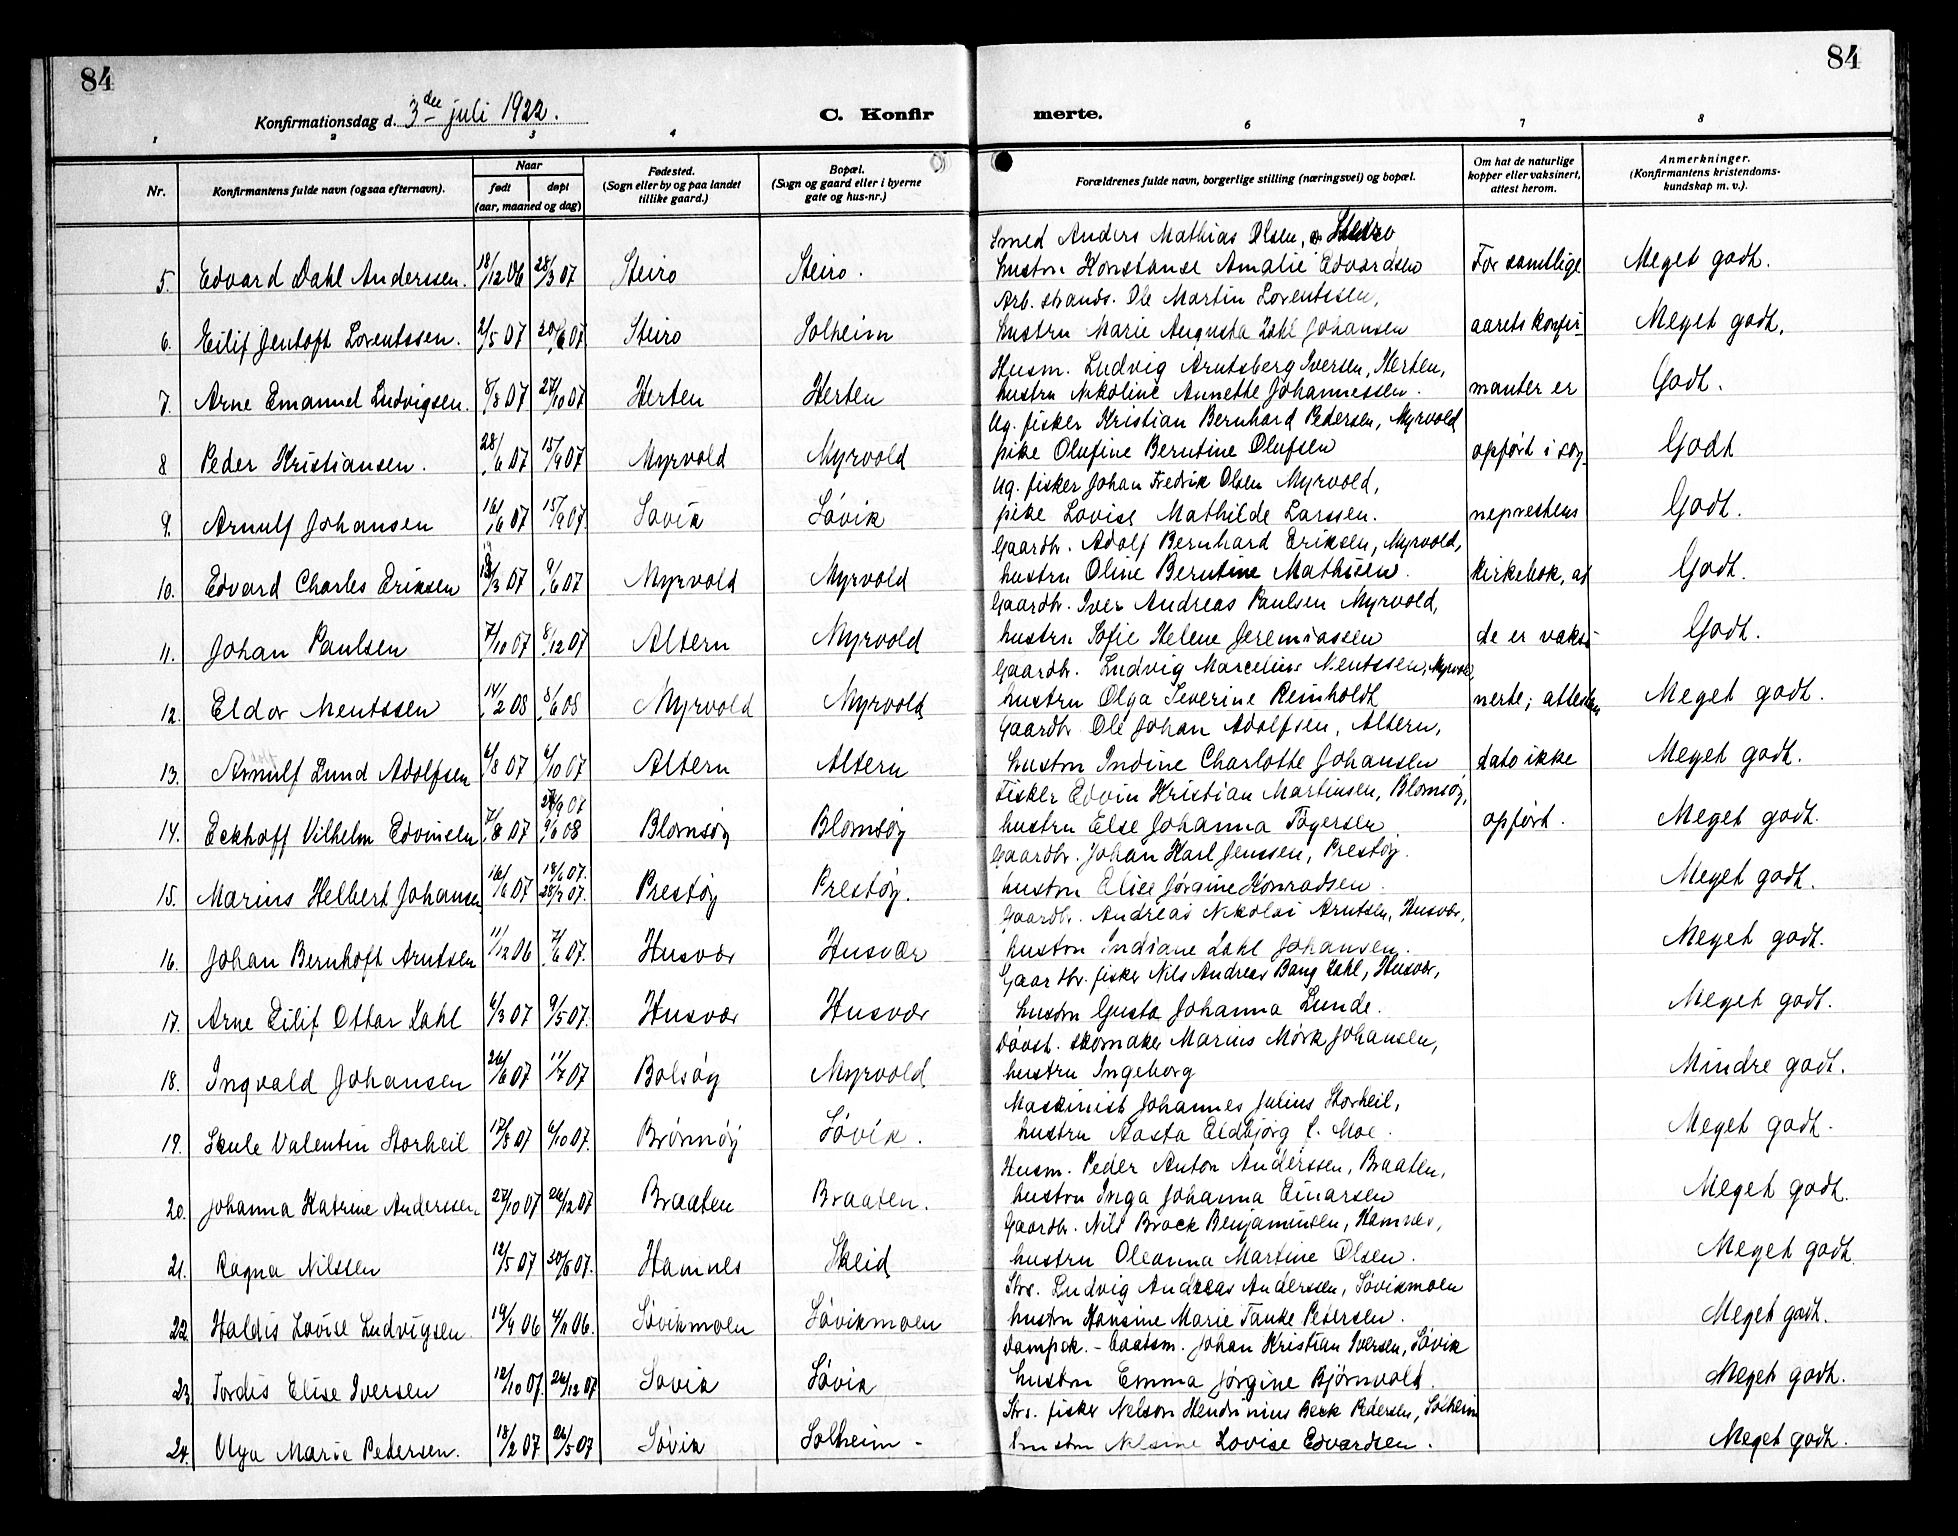 84
84
Konfirmationsdag d. 3die juli 1922.
C. Konfir merte.
1 2 3 4 6 7 8
Nr.
Konfirmantens fulde navn (ogsaa efternavn).
Naar
født døpt
(aar, maaned og dag)
Fødested.
(Sogn eller by og paa landet
tillike gaard.)
Bopæl.
(Sogn og gaard eller i byerne
gate og hus-nr.)
Forældrenes fulde navn, borgerlige stilling (næringsvei) og bopæl.
Om hat de naturlige
kopper eller vaksinert,
attest herom.
Anmerkninger.
(Konfirmantens kristendoms-
kundskap m. v.).
Smed Anders Mathias Olsen, Steiro
5. Edvard Dahl Anderssen. 18/12 06 28/3 07 Steiro Steiro. hustru Konstanse Amalie Edvardsen For samtlige Meget godt.
Arb. strands. Ole Martin Lorentssen,
6. Eilif Jentoft Lorentssen. 2/5 07 20/6 07 Steiro Solheim hustru Marie Augusta Zahl Johansen aarets konfir- Meget godt.
Husm. Ludvig Arntsberg Iversen, Herten,
7. Arne Emanuel Ludvigsen. 8/8 07 27/10 07 Herten Herten hustru Nikoline Annethe Johannessen. manter er Godt.
Ug. fisker Kristian Bernhard Pedersen, Myrvold
8 Peder Kristiansen. 28/6 07 15/9 07 Myrvold Myrvold pike Olufine Berntine Olufsen opført i sog- Godt
Ug. fisker Johan Fredrik Olsen Myrvold,
9. Arnulf Johansen 16/6 07 15/9 07 Søvik Søvik pike Lovise Mathilde Larssen. neprestens Godt.
Gaardbr. Adolf Bernhard Eriksen, Myrvold,
10. Edvard Charles Eriksen /3 07 9/6 07 Myrvold Myrvold hustru Oline Berntine Mathisen. kirkebok, at Godt.
Gaardbr. Iver Andreas Paulsen Myrvold,
11. Johan Paulsen 7/10 07 8/12 07 Altern Myrvold hustru Sofie Helene Jeremiassen de er vaksi- Godt.
Gaardbr. Ludvig Marcelius Mentssen, Myrvold,
12. Eldor Mentssen 14/2 08 8/6 08 Myrvold Myrvold hustru Olga Severine Reinholdt nerte; attestens Meget godt.
Gaardbr Ole Johan Adolfsen, Altern,
13. Arnulf Lund Adolfsen 6/8 07 6/10 07 Altern Altern hustru Indine Charlotte Johansen dato ikke Meget godt.
Fisker Edvin Kristian Martinsen, Blomsøy,
14. Eckhoff Vilhelm Edvinsen 7/8 07 29/9 07 9/6 08 Blomsøy Blomsøy hustru Else Johanna Tøgersen opført. Meget godt.
Gaardbr. Johan Karl Jenssen, Prestøy.
15. Marius Helbert Johansen 16/6 07 19/6 07. 28/7 07. Prestøy Prestøy. hustru Elise Jørgine Konradsen. Meget godt.
Gaardbr. Andreas Nikolai Arntsen, Husvær,
16. Johan Bernhoft Arntsen 11/12 06 7/6 07. Husvær Husvær hustru Indiane Zahl Johansen. Meget godt.
Gaardbr. fisker Nils Andreas Bang Zahl, Husvær,
17. Arne Eilif Ottar Zahl 6/3 07 9/5 07. Husvær Husvær hustru Gusta Johanna Lunde. Meget godt.
Døvst. skomaker Marius Mørk Johansen,
18. Ingvald Johansen 26/6 07 11/7 07 Bolsøy Myrvold hustru Ingeborg Mindre godt.
Maskinist Johannes Julius Storheil,
19. Skule Valentin Storheil 17/8 07 6/10 07. Brønnøy Søvik. hustru Aasta Eldbjørg f. Moe. Meget godt.
Husm. Peder Anton Anderssen, Braaten,
20. Johanna Katrine Anderssen 27/10 07 26/12 07 Braaten Braaten. hustru Inga Johanna Einarsen Meget godt.
Gaardbr. Nils Brock Benjaminsen, Hamnes,
21. Ragna Nilssen 12/5 07 30/8 07. Hamnes Skeid hustru Oleanna Martine Olsen. Meget godt.
Strs. Ludvig Andreas Anderssen, Søvikmoen
22. Haldis Lovise Ludvigsen 19/9 06 4/11 06. Søvikmoen Søvikmoen hustru Hansine Marie Tanke Petersen. Meget godt.
Dampsk.-baatsm. Johan Kristian Iversen, Søvik
23. Tordis Elise Iversen 12/10 07. 26/12 07 Søvik Søvik hustru Emma Jørgine Bjørnvold. Meget godt.
Strs. fisker Nelson Hendrinius Beck Pedersen, Solheim
24. Olga Marie Petersen. 18/2 07 26/5 07 Søvik Solheim - hustru Nelsine Lovise Edvardsen. Meget godt.